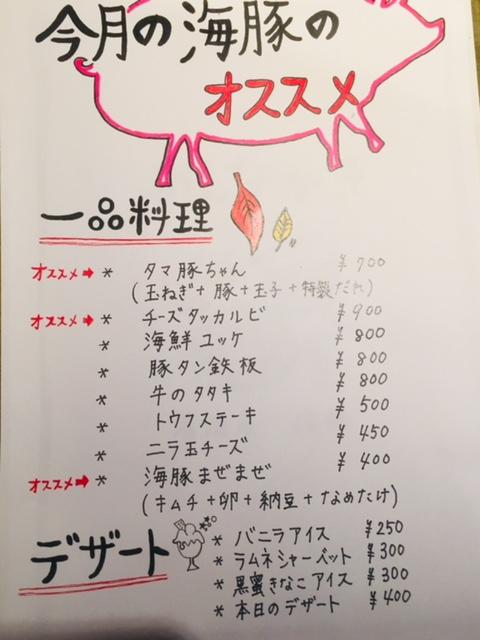 今月の海豚の
オススメ
一品料理
オススメ→ * タマ豚ちゃん ¥700
(玉ねぎ+豚+玉子+特製だれ)
オススメ→ * チーズタッカルビ ¥900
* 海鮮ユッケ ¥800
* 豚タン鉄板 ¥800
* 牛のタタキ ¥800
* トウフステーキ ¥500
* ニラ玉チーズ ¥450
オススメ→ * 海豚まぜまぜ ¥400
(キムチ+卵+納豆+なめたけ)
デザート
* バニラアイス ¥250
* ラムネシャーベット ¥300
* 黒蜜きなこアイス ¥300
* 本日のデザート ¥400